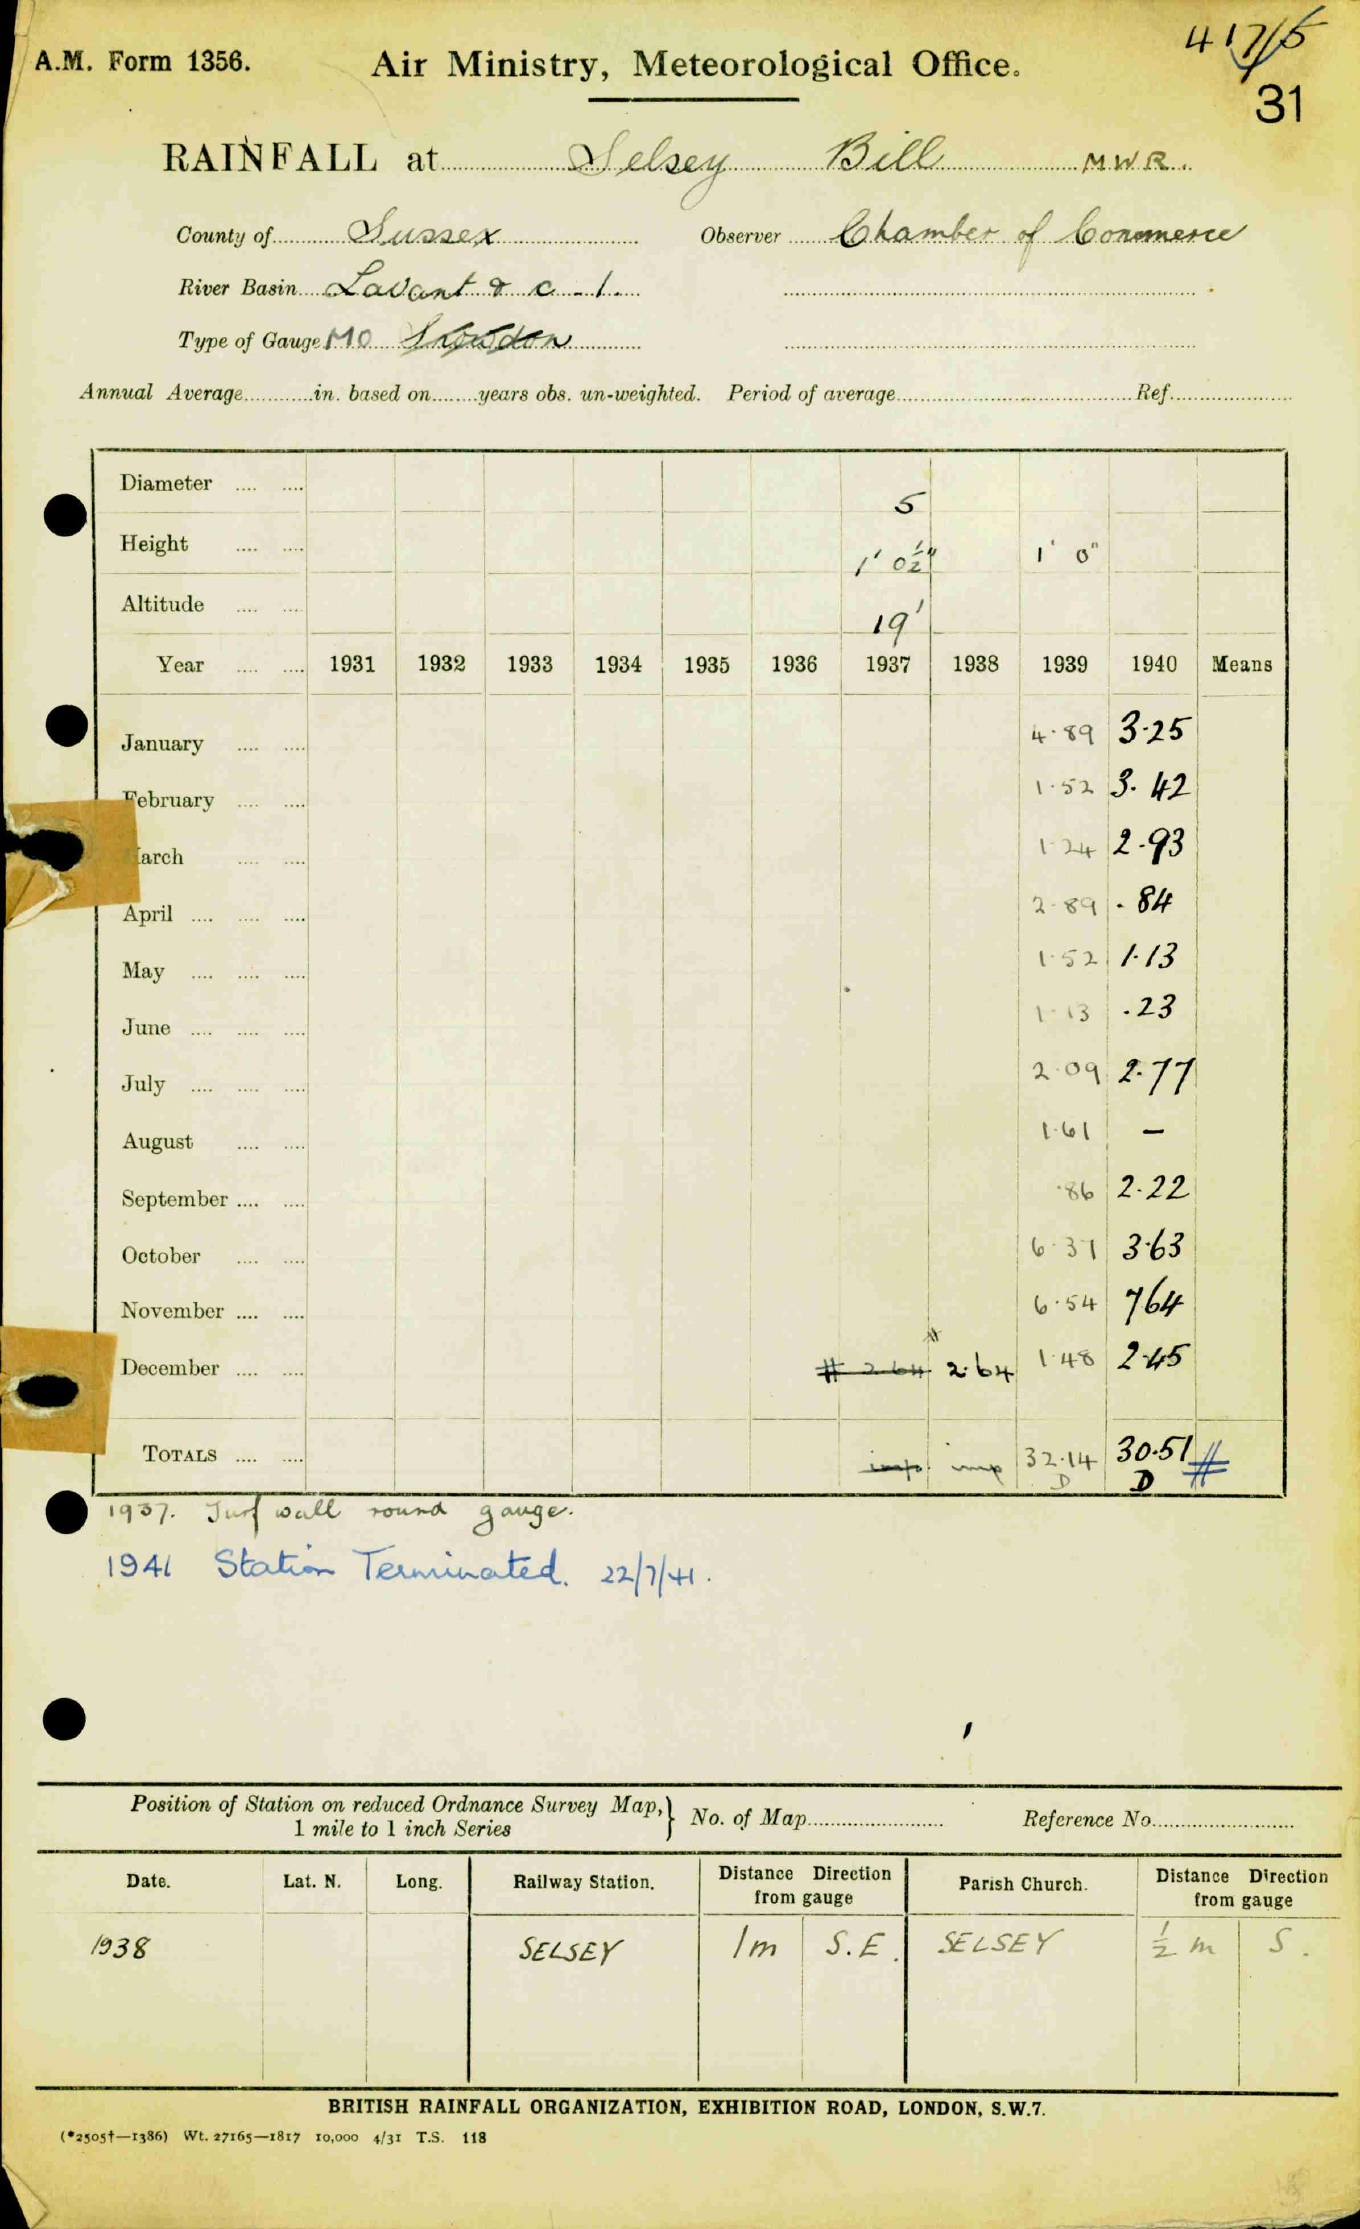 417/5
A.M. Form 1356. Air Ministry, Meteorological Office.
31
RAINFALL at Selsey Bill MWR.
County of Sussex Observer Chamber of Commerce
River Basin Lavant & c - 1.
Type of Gauge MO Snowdon
Annual Average in. based on years obs. un-weighted. Period of average Ref.
Diameter 5
Height 1' 0½" 1' 0"
Altitude 19'
Year 1931 1932 1933 1934 1935 1936 1937 1938 1939 1940 Means
January 4.89 3.25
February 1.52 3.42
March 1.24 2.93
April 2.89 .84
May 1.52 1.13
June 1.13 .23
July 2.09 2.77
August 1.61 –
September .86 2.22
October 6.37 3.63
November 6.54 7.64
December # 2.64 # 2.64 1.48 2.45
TOTALS imp. imp 32.14 30.51 #
D D
1937. Turf wall round gauge.
1941 Station Terminated. 22/7/41.
Position of Station on reduced Ordnance Survey Map, } No. of Map Reference No.
1 mile to 1 inch Series
Date. Lat. N. Long. Railway Station. Distance Direction from gauge Parish Church. Distance Direction from gauge
1938 SELSEY 1m S.E. SELSEY ½ m S.
BRITISH RAINFALL ORGANIZATION, EXHIBITION ROAD, LONDON, S.W.7.
(*2505†—1386) Wt. 27165—1817 10,000 4/31 T.S. 118